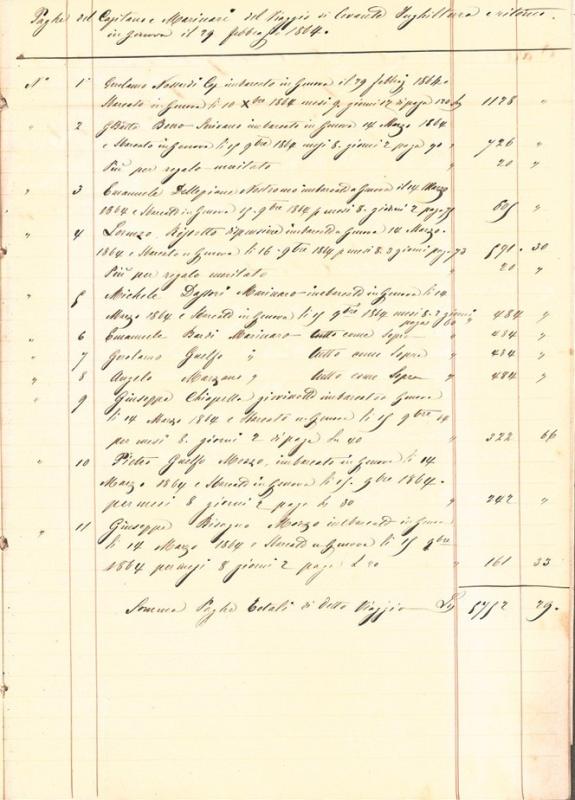 Paghe del Capitano e Marinari del Viaggio di Levante Inghilterra e ritorno
in Genova il 29 febbraio 1864.
N° 1 Cap imbarcato in Genova il 29 febbraio 1864 e
sbarcato in Genova li 10 Xbre 1864 mesi 9. giorni 12 di paga 120 1128 "
" 2 GBatta Bono Scrivano imbarcato in Genova 14 Marzo 1864
e sbarcato in Genova li 15 9bre 1864 mesi 8. giorni 2 paga 90 " 726 "
Più per regalo meritato " 20 "
" 3 Emanuele Dellepiane Nostromo imbarcato a Genova il 14 Marzo
1864 e sbarcato in Genova 15. 9bre 1864 p mesi 8. giorni 2 paga 75 605 "
" 4 Lorenzo Rispetto dispensiere imbarcato Genova 14 Marzo.
1864 e sbarcato in Genova li 16. 9bre 1864 p mesi 8. 3 giorni paga 73 591. 30
Più per regalo meritato " 20 "
" 5 Michele Dassori Marinaro imbarcato in Genova li 14
Marzo 1864 e sbarcato in Genova li 15 9bre 1864 mesi 8. 2 giorni
paga 60 " 484 "
" 6 Emanuele Bardi Marinaro tutto come Sopra " 484 "
" 7 Gerolamo Guelfo " tutto come Sopra " 484 "
" 8 Angelo Marzano " tutto come Sopra " 484 "
" 9 Giuseppe Chiappella giovinotto imbarcato a Genova
li 14 Marzo 1864 e sbarcato in Genova li 15 9bre 64
per mesi 8. giorni 2 di paga Ln 40 " 322 66
" 10 Pietro Guelfo Mozzo, imbarcato in Genova li 14
Marzo 1864 e sbarcato in Genova li 15. 9bre 1864.
per mesi 8 giorni 2 paga Ln 30 " 242 "
" 11 Giuseppe Bisogno Mozzo imbarcato in Genova
li 14 Marzo 1864 e sbarcato in Genova li 15 9bre
1864 per mesi 8 giorni 2 paga L 20 " 161 33
Somma Paghe Totali di detto Viaggio Ln 5752 29.